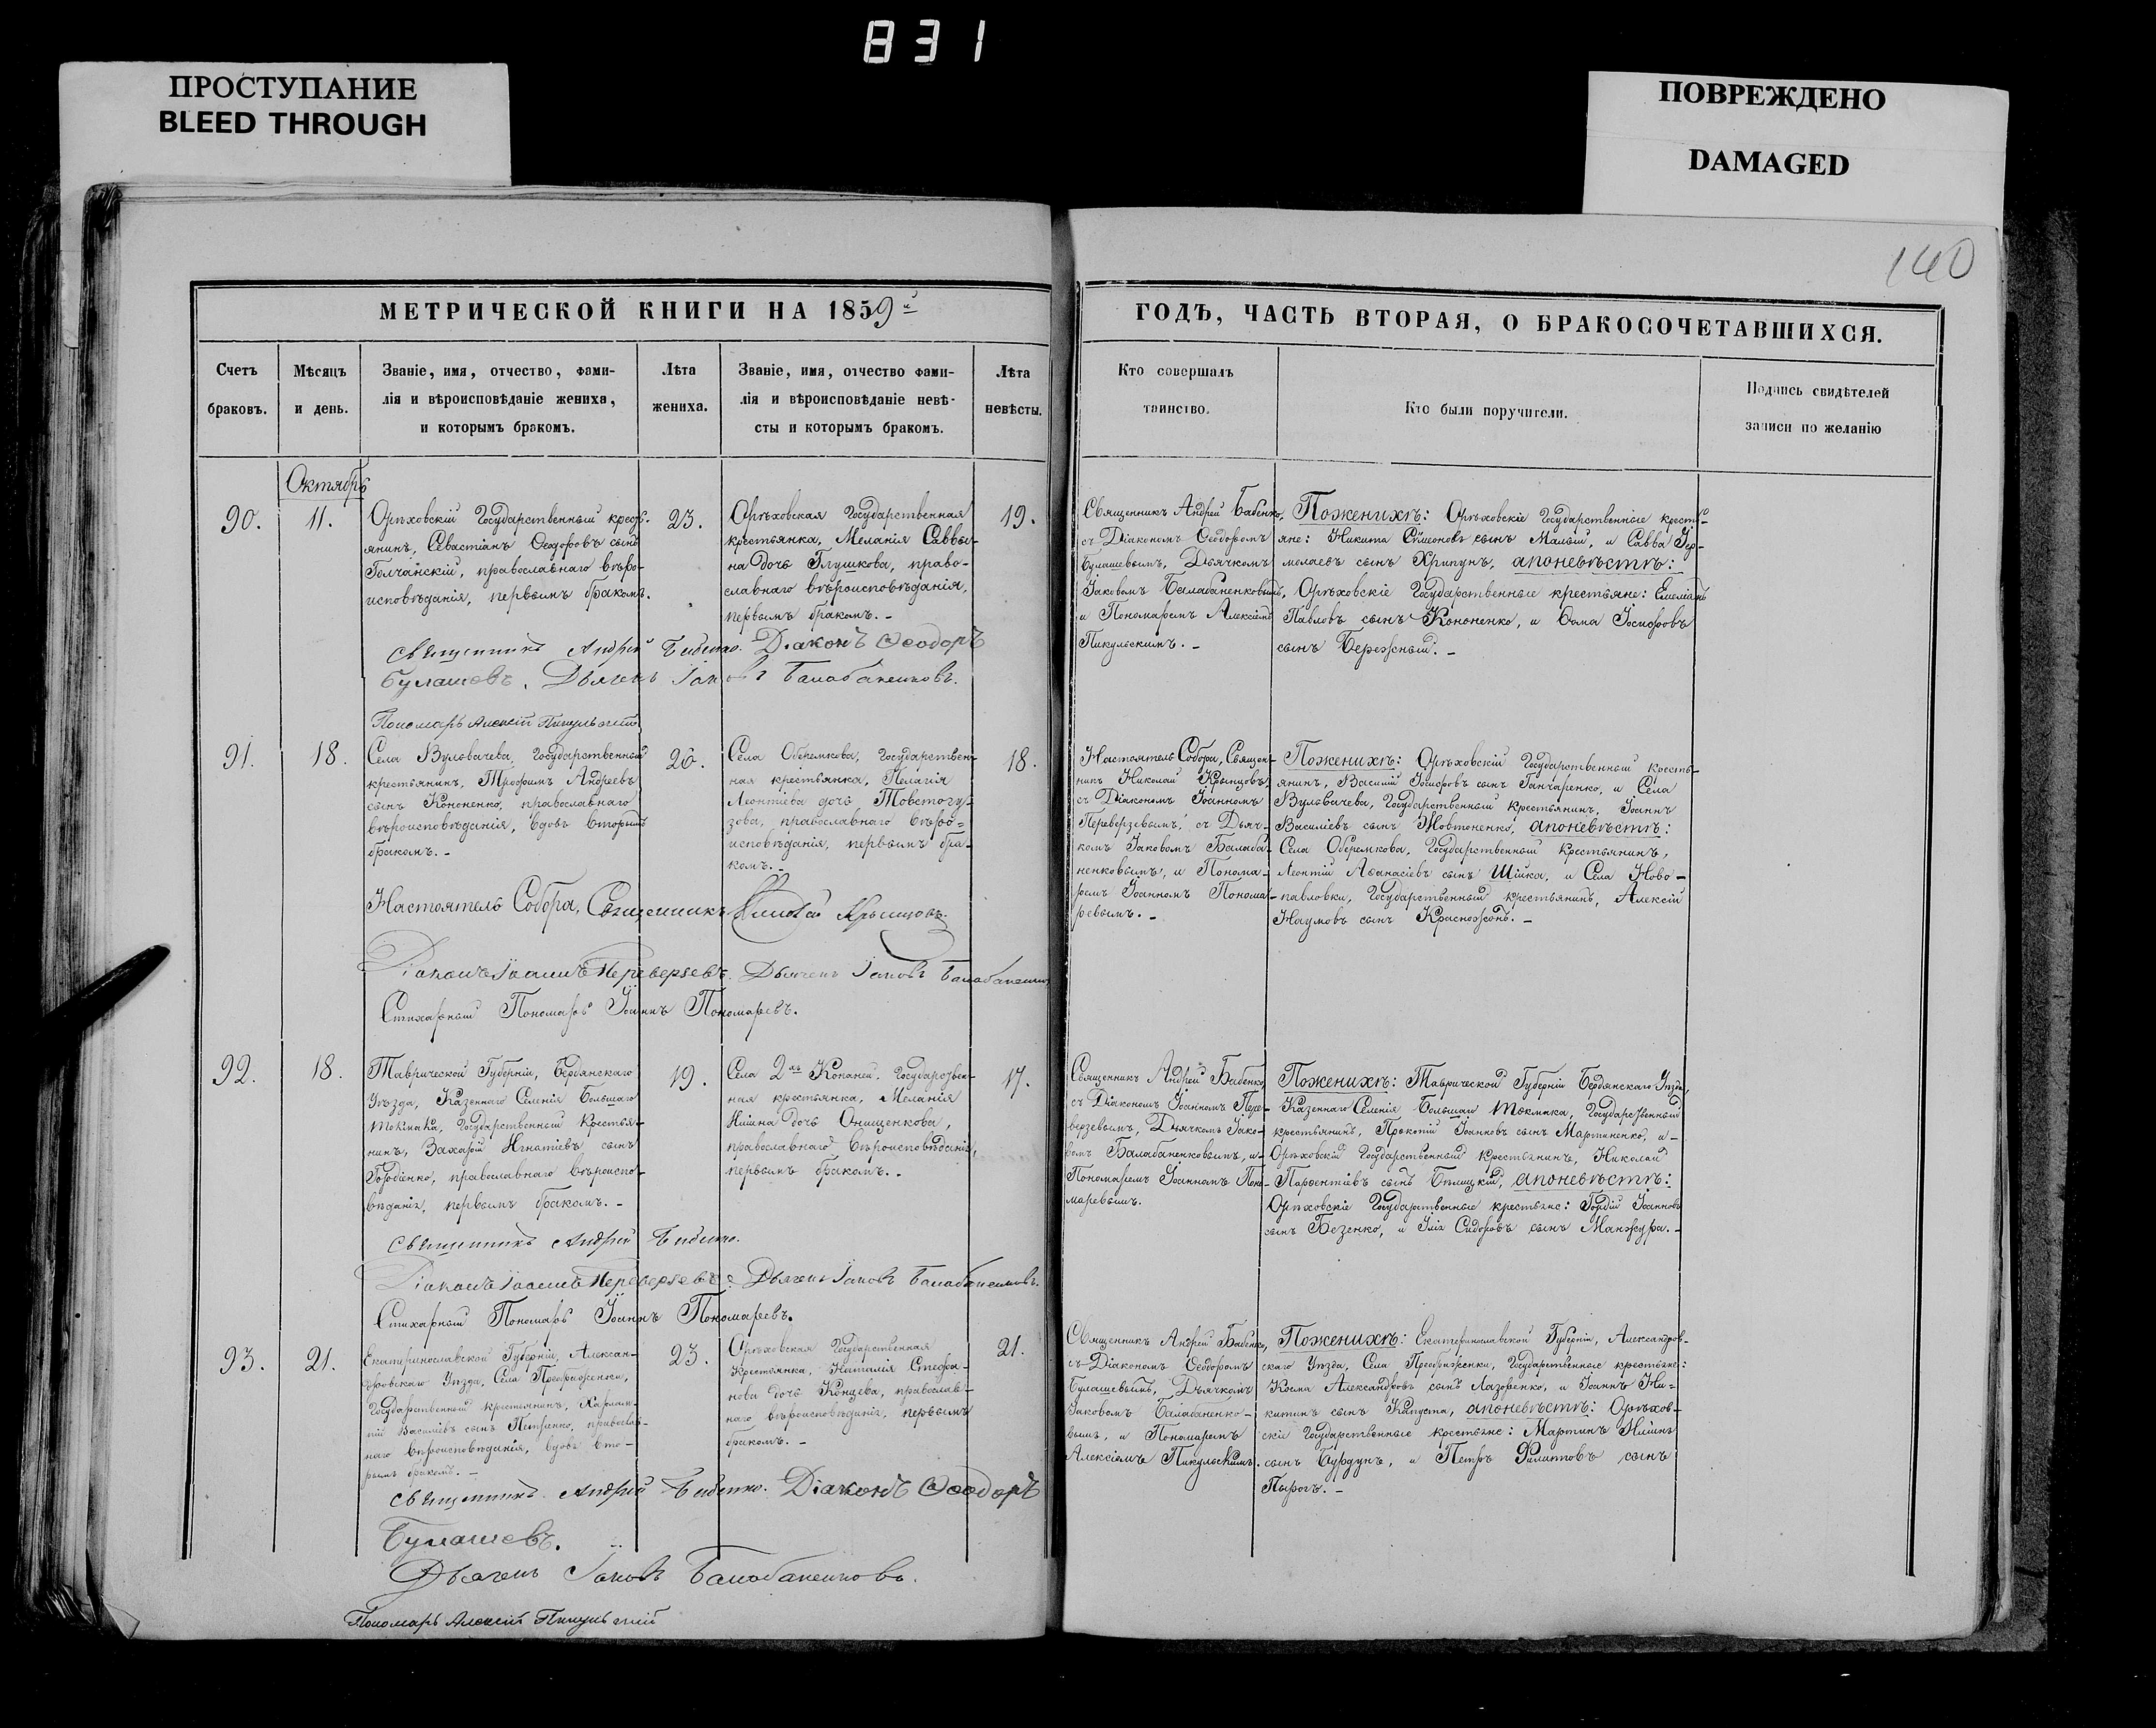 831
ПРОСТУПАНИЕ
BLEED THROUGH
ПОВРЕЖДЕНО
DAMAGED
140
МЕТРИЧЕСКОЙ КНИГИ НА 1859й
ГОДЪ, ЧАСТЬ ВТОРАЯ, О БРАКОСОЧЕТАВШИХСЯ.
Счетъ
браковъ.
Мѣсяцъ
и день.
Званіе, имя, отчество, фами-
лія и вѣроисповѣданіе жениха,
и которымъ бракомъ.
Лѣта
жениха.
Званіе, имя, отчество фами-
лія и вѣроисповѣданіе невѣ-
сты и которымъ бракомъ.
Лѣта
невѣсты.
Кто совершалъ
таинство.
Кто были поручители.
Подпись свидѣтелей
записи по желанію
Октябрь
90.
11.
Орѣховскій Государственный кресть-
янинъ, Севастіанъ Ѳеодоровъ сынъ
Голчанскій, православнаго вѣро-
исповѣданія, первымъ бракомъ.
23.
Орѣховская Государственная
крестьянка, Меланія Саввы-
на дочь Глушкова, право-
славнаго вѣроисповѣданія,
первымъ бракомъ. -
19.
Священникъ Андрей Бабенко,
съ Діакономъ Ѳеодоромъ
Булашевымъ, Дьячкомъ
Іаковомъ Балабаненковымъ,
и Пономаремъ Алексіемъ
Пикульскимъ. -
Поженихѣ: Орѣховскіе Государственные кресть-
яне: Никита Сѵмеоновъ сынъ Малый, и Савва Ер-
молаевъ сынъ Хрипунъ, апоневѣстѣ:
Орѣховскіе Государственные крестьяне: Емеліанъ
Павловъ сынъ Кононенко, и Ѳома Іосифовъ
сынъ Бережный. -
Священникъ Андрей Бабенко. Діаконъ Ѳеодоръ
Булашевъ. Дьячекъ Іаковъ Балабаненковъ.
Пономарь Алексій Пикульскій
91.
18.
Села Вульвачева, Государственный
крестьянинъ, Трофимъ Андреевъ
сынъ Кононенко, православнаго
вѣроисповѣданія, вдовъ вторымъ
бракомъ. -
26.
Села Обѣремкова, Государствен-
ная крестьянка, Пелагія
Леонтіева дочь Товстогу-
зова, православнаго вѣро-
исповѣданія, первымъ бра-
комъ. -
18.
Настоятель Собора, Священ-
никъ Николай Крынцовъ,
съ Діакономъ Іоанномъ
Переверзевымъ, съ Дьяч-
комъ Іаковомъ Балаба-
ненковымъ, и Понома-
ремъ Іоанномъ Понома-
ревымъ. -
Поженихѣ: Орѣховскій Государственный кресть-
янинъ, Василій Іосифовъ сынъ Ганчаренко, и Села
Вульвачева, Государственный крестьянинъ, Іоаннъ
Василіевъ сынъ Жовтоненко, апоневѣстѣ:
Села Обѣремкова, Государственный крестьянинъ,
Леонтій Аѳанасіевъ сынъ Шійка, и Села Ново-
павловки, Государственный крестьянинъ, Алексій
Наумовъ сынъ Красножонъ. -
Настоятель Собора, Священникъ Николай Крынцовъ.
Діаконъ Іоаннъ Переверзевъ. Дьячекъ Іаковъ Балабаненковъ
Стихарный Пономарь Іоаннъ Пономаревъ.
92.
18.
Таврической Губерніи, Бердянскаго
Уѣзда, Казеннаго Селенія Большаго
Токмака, Государственный Крестья-
нинъ, Захарій Игнатіевъ сынъ
Гордіенко, православнаго вѣроиспо-
вѣданія, первымъ бракомъ. -
19.
Села 2хъ Копаней, Государствен-
ная крестьянка, Меланія
Ніпіна дочь Онищенкова,
православнаго вѣроисповѣданія,
первымъ бракомъ. -
17.
Священникъ Андрей Бабенко
съ Діакономъ Іоанномъ Пере-
верзевымъ, Дьячкомъ Іако-
вомъ Балабаненковымъ, и-
Пономаремъ Іоанномъ Поно-
маревымъ.
Поженихѣ: Таврической Губерніи Бердянскаго Уѣзда,
Казеннаго Селенія Большаго Токмака, Государственный
крестьянинъ, Прокопій Іоанновъ сынъ Мартиненко, и-
Орѣховскій Государственный крестьянинъ, Николай
Парѳентіевъ сынъ Бѣлицкій, апоневѣстѣ:
Орѣховскіе Государственные крестьяне: Гордій Іоанновъ
сынъ Безенко, и Ілія Сидоровъ сынъ Манжура. -
Священникъ Андрей Бабенко.
Діаконъ Іоаннъ Переверзевъ. Дьячекъ Іаковъ Балабаненковъ.
Стихарный Пономарь Іоаннъ Пономаревъ.
93.
21.
Екатеринославской Губерніи, Алексан-
дровскаго Уѣзда, Села Преображенки,
Государственный крестьянинъ, Харлам-
пій Василіевъ сынъ Петренко, православ-
наго вѣроисповѣданія, вдовъ вто-
рымъ бракомъ. -
23.
Орѣховская Государственная
Крестьянка, Наталія Стефа-
нова дочь Концева, православ-
наго вѣроисповѣданія, первымъ
бракомъ. -
21.
Священникъ Андрей Бабенко,
съ Діакономъ Ѳеодоромъ
Булашевымъ, Дьячкомъ
Іаковомъ Балабаненко-
вымъ, и Пономаремъ
Алексіемъ Пикульскимъ.
Поженихѣ: Екатеринославской Губерніи, Александров-
скаго Уѣзда, Села Преображенки, Государственные крестьяне:
Косма Александровъ сынъ Лазоренко, и Іоаннъ Ни-
китинъ сынъ Капуста, апоневѣстѣ: Орѣхов-
скіе Государственные крестьяне: Мартинъ Ніпінъ
сынъ Бурдунъ, и Петръ Филиповъ сынъ
Пырогъ. -
Священникъ Андрей Бабенко. Діаконъ Ѳеодоръ
Булашевъ.
Дьячекъ Іаковъ Балабаненковъ.
Пономарь Алексій Пикульскій